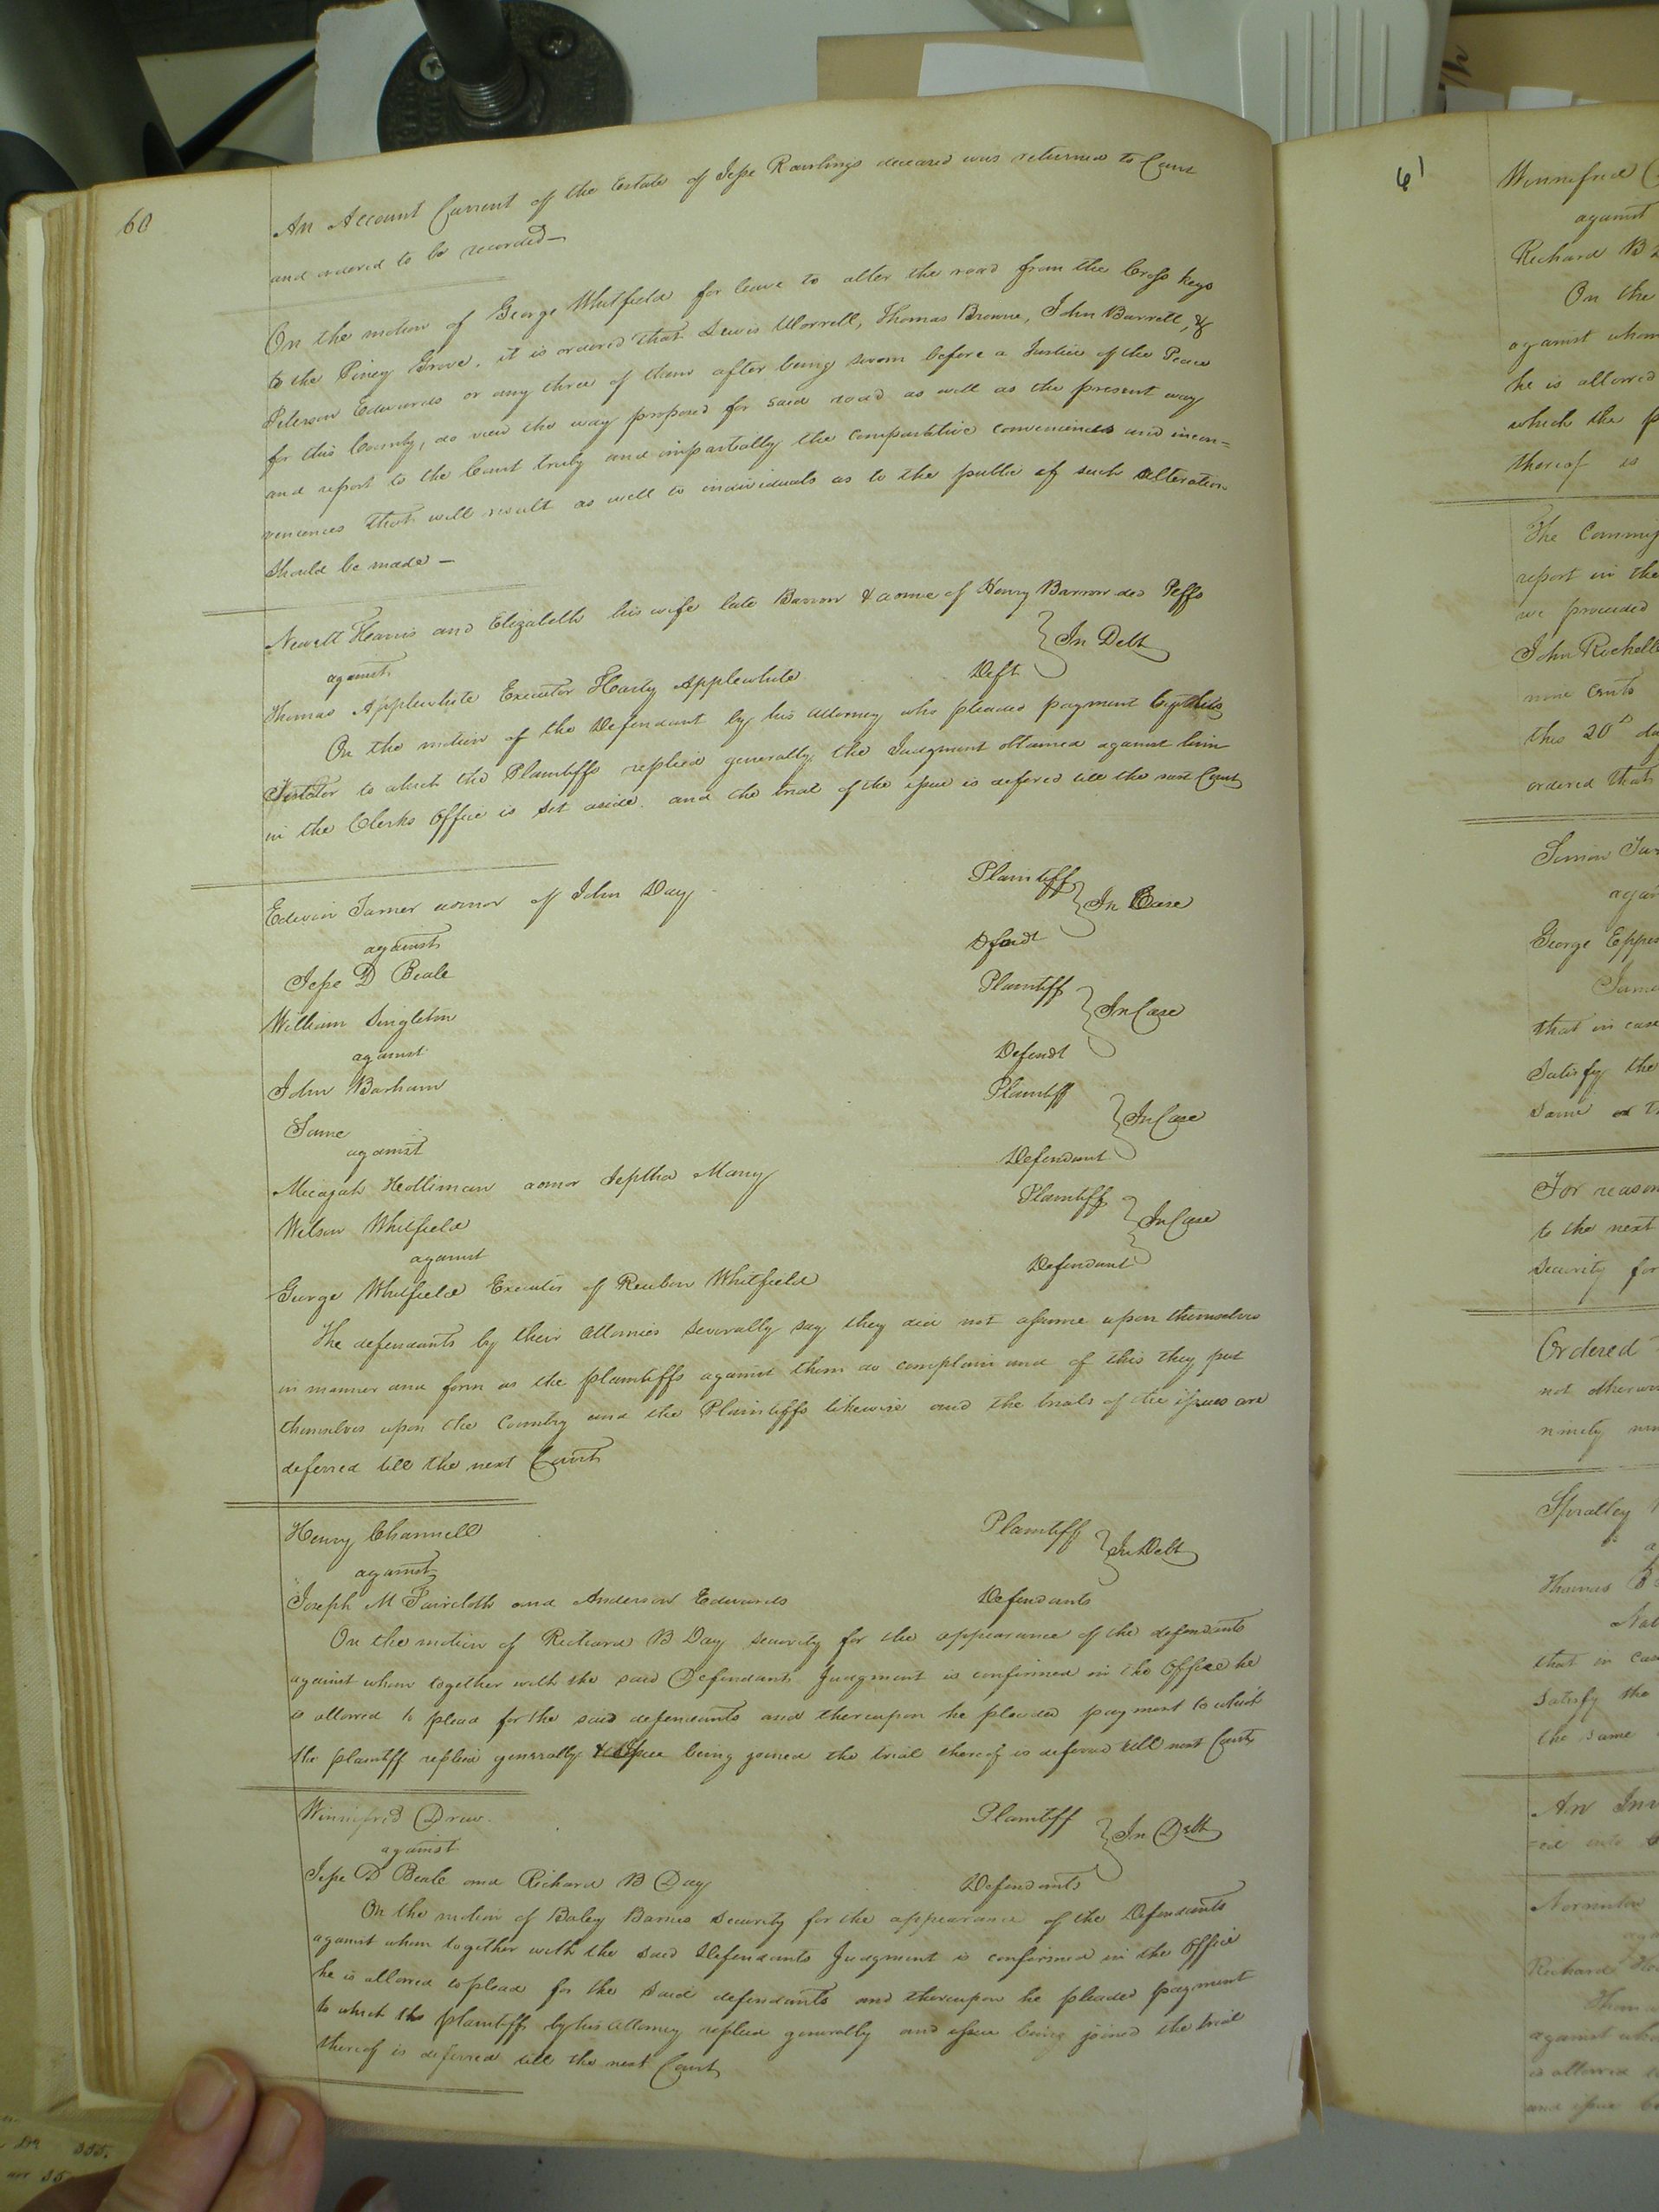 60
An Account Current of the Estate of Jesse Rawlings deceased was returned to Court
and ordered to be recorded
On the motion of George Whitfield for leave to alter the road from the Cross keys
to the Piney Grove, it is ordered that Lewis Worrell, Thomas Browne, John Barrett, &
Peterson Edwards or any three of them after being sworn before a Justice of the Peace
for this County, do view the way proposed for said road as well as the present way
and report to the Court truly and impartially the comparative conveniences and incon=
veniences that will result as well to individuals as to the public if such alteration
should be made —
Newitt Harris and Elizabeth his wife late Barrow & admx of Henry Barrow decd Plffs
against
In Debt
Thomas Applewhite Executor Hardy Applewhite Deft
On the motion of the Defendant by his Attorney who pleaded payment by his
Testator to which the Plaintiffs replied generally, the Judgment obtained against him
in the Clerks Office is set aside and the trial of the issue is defered till the next Court
Edwin Turner admor of John Day Plaintiff
against
In Case
Jesse D Beale Defendt
William Singleton Plaintiff
against
In Case
John Barham Defendt
Same Plaintiff
against
In Case
Micajah Holliman admor Jeptha Many Defendant
Wilson Whitfield Plaintiff
against
In Case
George Whitfield Executor of Reuben Whitfield Defendant
The defendants by their Attornies severally say they did not assume upon themselves
in manner and form as the plaintiffs against them do complain and of this they put
themselves upon the Country and the Plaintiffs likewise and the trials of the issues are
deferred till the next Court
Henry Channell Plaintiff
against
In Debt
Joseph M Faircloth and Anderson Edwards Defendants
On the motion of Richard B Day security for the appearance of the defendants
against whom together with the said Defendants Judgment is confirmed in the Office he
is allowed to plead for the said defendants and thereupon he pleaded payment to which
the plaintiff replied generally & Issue being joined the trial thereof is deferred till next Court
Winnifred Drew Plaintiff
against
In Debt
Jesse D Beale and Richard B Day Defendants
On the motion of Boley Barnes security for the appearance of the Defendants
against whom together with the said Defendants Judgment is confirmed in the Office
he is allowed to plead for the said defendants and thereupon he pleaded payment
to which the plaintiff by his Attorney replied generally and issue being joined the trial
thereof is deferred till the next Court
61
Winnefred
against
Richard B
On the
against whom
he is allowed
which the
thereof is
The
report in the
we proceeded
John Rochelle
nine Cents
this 20th
ordered that
Simon
George
that in case
Satisfy the
same or
For reason
to the next
security for
Ordered
not
ninety
Spratley
Thomas
that in case
Satisfy the
the same
An
Richard
against
is allowed
and issue